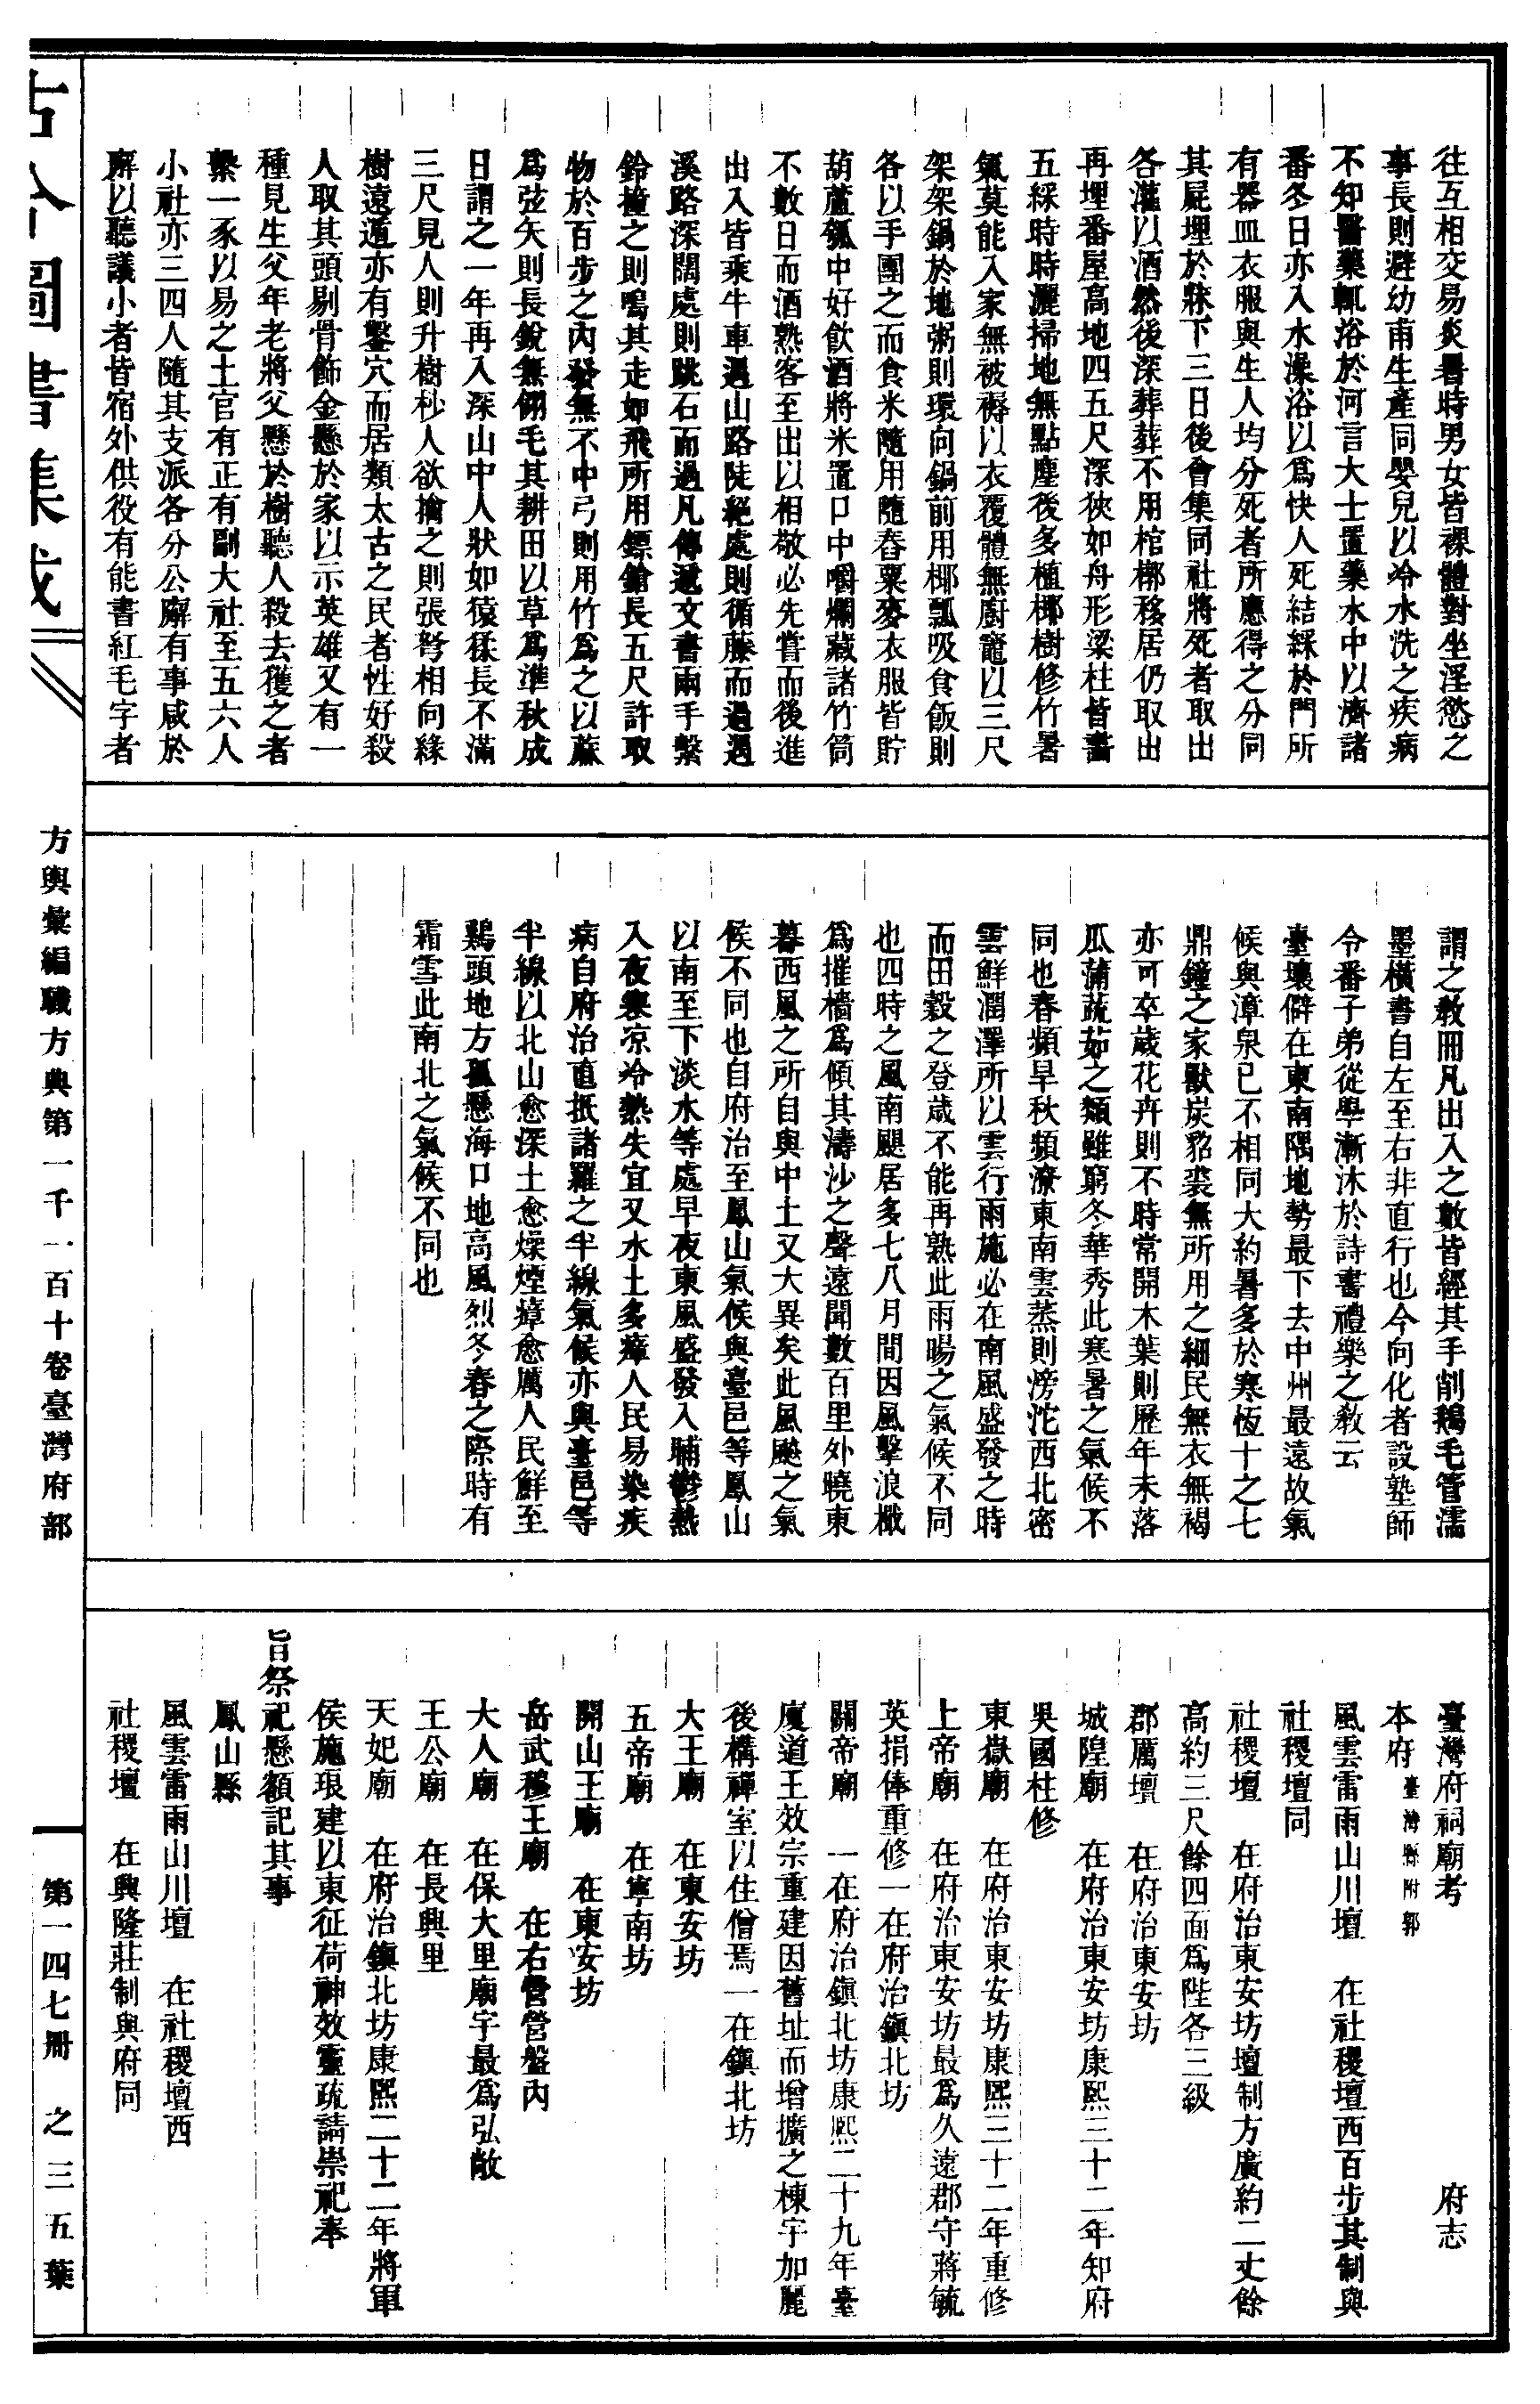 往互相交易炎暑時男女皆裸體對坐淫慾之
事長則避幼甫生產同嬰兒以冷水洗之疾病
不知醫藥輒浴於河言大士置藥水中以濟諸
番冬日亦入水澡浴以爲快人死結綵於門所
有器皿衣服與生人均分死者所應得之分同
其屍埋於牀下三日後會集同社將死者取出
各灌以酒然後深葬葬不用棺槨移居仍取出
再埋番屋高地四五尺深狹如舟形梁柱皆畫
五綵時時灑掃地無點塵後多植椰樹修竹暑
氣莫能入家無被褥以衣覆體無廚竈以三尺
架架鍋於地粥則環向鍋前用椰瓢吸食飯則
各以手團之而食米隨用隨舂粟麥衣服皆貯
葫蘆瓠中好飲酒將米置口中嚼爛藏諸竹筒
不數日而酒熟客至出以相敬必先嘗而後進
出入皆乘牛車遇山路陡絕處則循藤而過遇
溪路深闊處則跳石而過凡傳遞文書兩手繫
鈴撞之則鳴其走如飛所用鏢鎗長五尺許取
物於百步之內發無不中弓則用竹爲之以蔴
爲弦矢則長銳無翎毛其耕田以草爲準秋成
日謂之一年再入深山中人狀如猿猱長不滿
三尺見人則升樹杪人欲擒之則張弩相向緣
樹遠遁亦有鑿穴而居類太古之民者性好殺
人取其頭剔骨飾金懸於家以示英雄又有一
種見生父年老將父懸於樹聽人殺去獲之者
繫一豕以易之土官有正有副大社至五六人
小社亦三四人隨其支派各分公廨有事咸於
廨以聽議小者皆宿外供役有能書紅毛字者
謂之教冊凡出入之數皆經其手削鵝毛管濡
墨橫書自左至右非直行也今向化者設塾師
令番子弟從學漸沐於詩書禮樂之教云
臺壤僻在東南隅地勢最下去中州最遠故氣
候與漳泉已不相同大約暑多於寒恆十之七
鼎鐘之家獸炭貂裘無所用之細民無衣無褐
亦可卒歲花卉則不時常開木葉則歷年未落
瓜蒲蔬茹之類雖窮冬華秀此寒暑之氣候不
同也春頻旱秋頻潦東南雲蒸則滂沱西北密
雲鮮潤澤所以雲行雨施必在南風盛發之時
而田穀之登歲不能再熟此雨暘之氣候不同
也四時之風南颶居多七八月間因風擊浪檝
爲摧檣爲傾其濤沙之聲遠聞數百里外曉東
暮西風之所自與中土又大異矣此風颷之氣
候不同也自府治至鳳山氣候與臺邑等鳳山
以南至下淡水等處早夜東風盛發入晡鬱熱
入夜寒凉冷熱失宜又水土多瘴人民易染疾
病自府治直抵諸羅之半線氣候亦與臺邑等
半線以北山愈深土愈燥煙瘴愈厲人民鮮至
鷄頭地方孤懸海口地高風烈冬春之際時有
霜雪此南北之氣候不同也
臺灣府祠廟考 府志
本府 臺灣縣附郭
風雲雷雨山川壇 在社稷壇西百步其制與
社稷壇同
社稷壇 在府治東安坊壇制方廣約二丈餘
高約三尺餘四面爲陛各三級
郡厲壇 在府治東安坊
城隍廟 在府治東安坊康熙三十二年知府
吳國柱修
東嶽廟 在府治東安坊康熙三十二年重修
上帝廟 在府治東安坊最爲久遠郡守蔣毓
英捐俸重修一在府治鎭北坊
關帝廟 一在府治鎭北坊康熙二十九年臺
廈道王效宗重建因舊址而增擴之棟宇加麗
後構禪室以住僧焉一在鎭北坊
大王廟 在東安坊
五帝廟 在寧南坊
開山王廟 在東安坊
岳武穆王廟 在右營營盤內
大人廟 在保大里廟宇最爲弘敞
王公廟 在長興里
天妃廟 在府治鎭北坊康熙二十二年將軍
侯施琅建以東征荷神效靈疏請崇祀奉
旨祭祀懸額記其事
鳳山縣
風雲雷雨山川壇 在社稷壇西
社稷壇 在興隆莊制與府同
古今圖書集成
方輿彙編職方典第一千一百十卷臺灣府部
第一四七冊 之三五葉